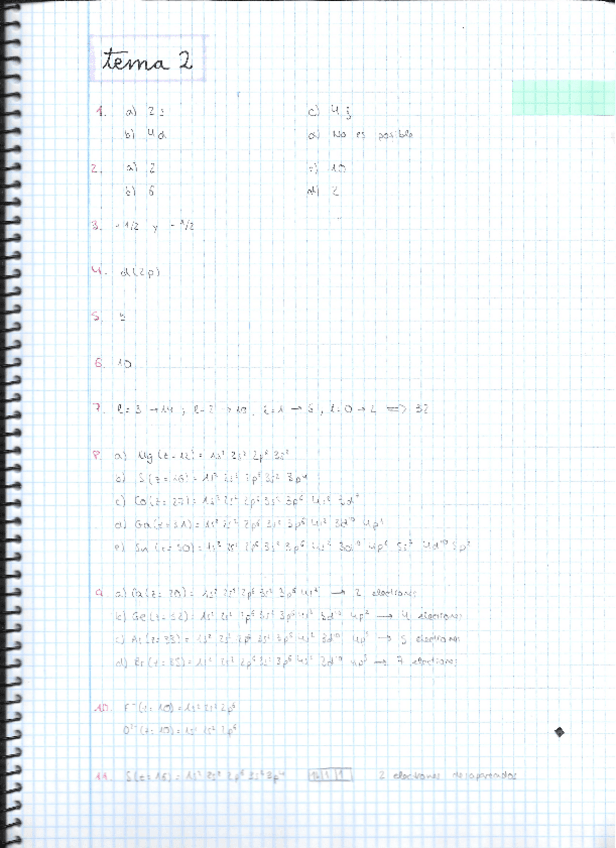 tema 2
1. a) 2s c) 4f
b) 4d d) No es posible
2. a) 2 c) 10
b) 6 d) 2
3. -1/2 y -1/2
4. d(2p)
5. 5
6. 10
7. l=3 → 14 ; l=2 → 10, l=1 → 6, l=0 → 2 => 32
8. a) Mg (z=12) = 1s² 2s² 2p⁶ 3s²
b) S (z=16) = 1s² 2s² 2p⁶ 3s² 3p⁴
c) Co (z=27) = 1s² 2s² 2p⁶ 3s² 3p⁶ 4s² 3d⁷
d) Ga (z=31) = 1s² 2s² 2p⁶ 3s² 3p⁶ 4s² 3d¹⁰ 4p¹
e) Sn (z=50) = 1s² 2s² 2p⁶ 3s² 3p⁶ 4s² 3d¹⁰ 4p⁶ 5s² 4d¹⁰ 5p²
9. a) Ca (z=20) = 1s² 2s² 2p⁶ 3s² 3p⁶ 4s² → 2 electrones
b) Ge (z=32) = 1s² 2s² 2p⁶ 3s² 3p⁶ 4s² 3d¹⁰ 4p² → 4 electrones
c) As (z=33) = 1s² 2s² 2p⁶ 3s² 3p⁶ 4s² 3d¹⁰ 4p³ → 5 electrones
d) Br (z=35) = 1s² 2s² 2p⁶ 3s² 3p⁶ 4s² 3d¹⁰ 4p⁵ → 7 electrones
10. F⁻ (z=10) = 1s² 2s² 2p⁶
O²⁻ (z=10) = 1s² 2s² 2p⁶
11. S (z=16) = 1s² 2s² 2p⁶ 3s² 3p⁴ 2 electrones desapareados